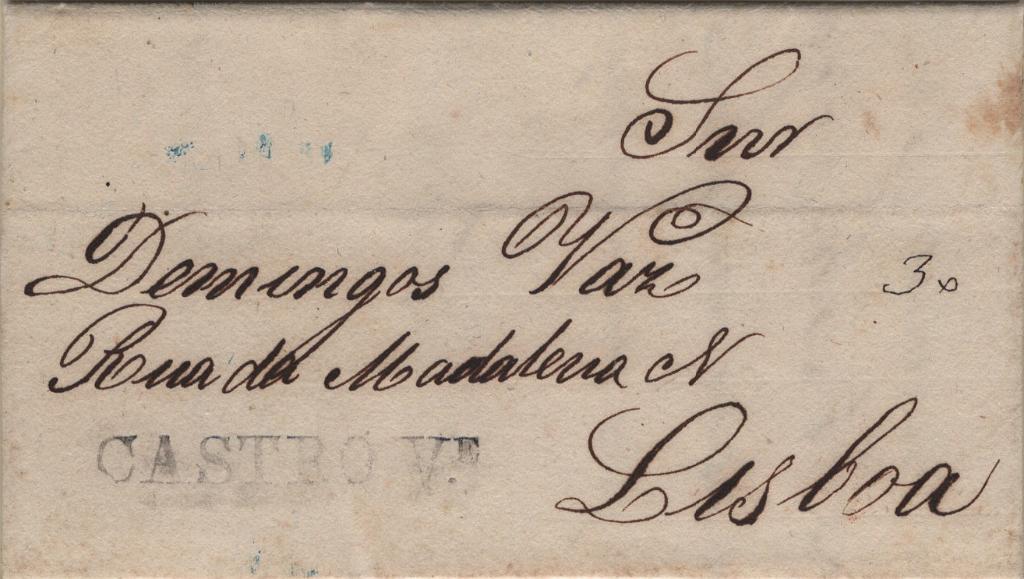 Snr
Demingos Vaz
3x
Rua da Madalena N
CASTRO Vᴱ.
Lisboa